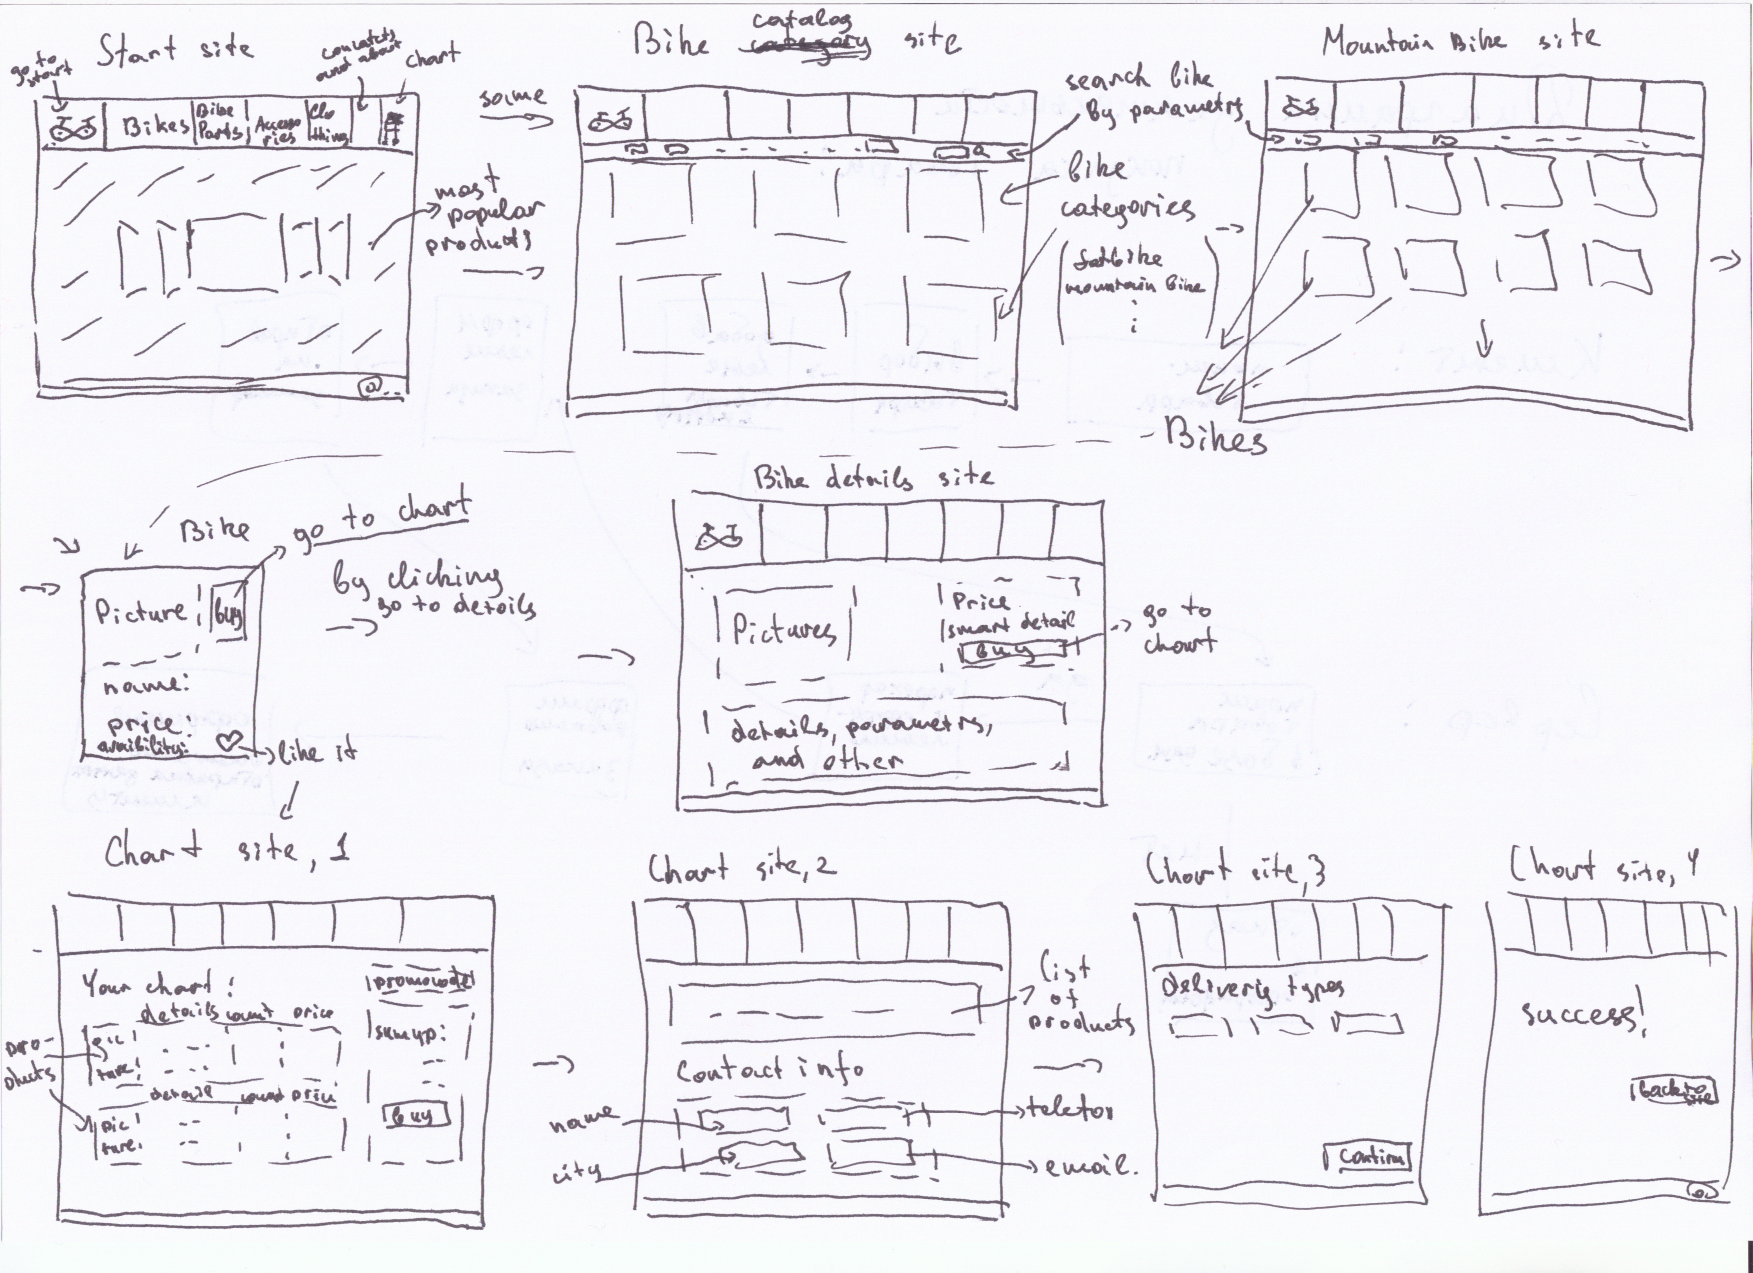 Start site
go to
start
concatcts
and about
chart
Bikes
Bike
Parts
Accesso
ries
Clo
thing
most
popular
products
same
Bike catalog site
category
search bike
by parametrs
bike
categories
fatbike
mountain bike
Mountain Bike site
Bikes
Bike
go to chart
by clicking
go to details
Picture
buy
name:
price:
avaibility:
like it
Bike details site
Pictures
Price
smart detail
buy
go to
chart
details, parametrs,
and other
Chart site, 1
Your chart:
promocode
details count price
pic
ture:
sum up:
pro-
ducts
details count price
pic
ture:
buy
Chart site, 2
list
of
products
Contact info
name
telefon
city
email.
Chart site, 3
Delivery types
Confirm
Chart site, 4
success!
back to
site